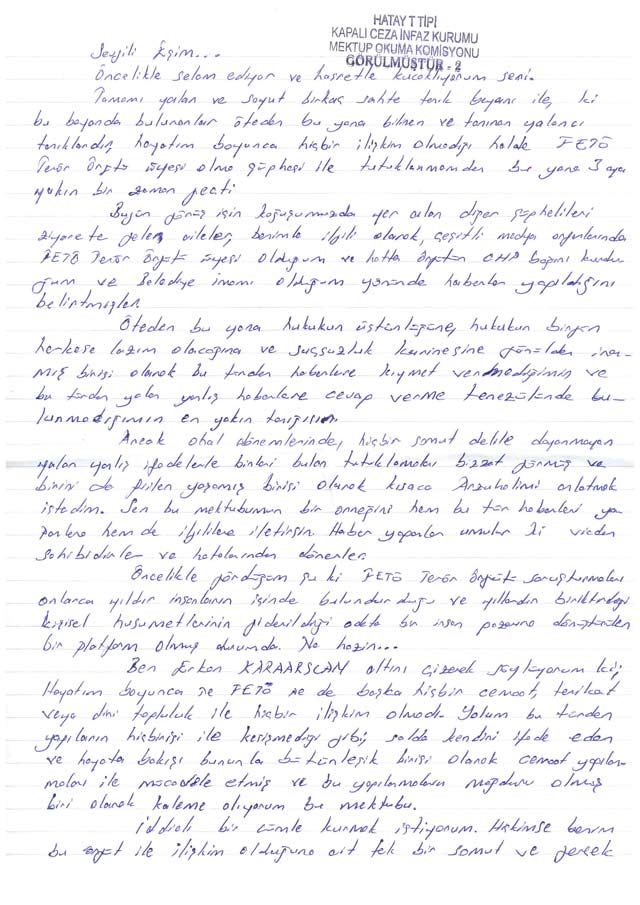 HATAY T TİPİ
KAPALI CEZA İNFAZ KURUMU
MEKTUP OKUMA KOMİSYONU
GÖRÜLMÜŞTÜR - 2
Sevgili Eşim...
Öncelikle selam ediyor ve hasretle kucaklıyorum seni.
Tamamı yalan ve soyut birkaç sahte tanık beyanı ile, ki
bu beyanda bulunanlar öteden bu yana bilinen ve tanınan yalancı
tanıklardır, hayatım boyunca hiçbir ilişkim olmadığı halde FETÖ
Terör Örgütü üyesi olma şüphesi ile tutuklanmamdan bu yana 3 aya
yakın bir zaman geçti.
Bugün görüş için koğuşumuzda yer alan diğer şüphelileri
ziyarete gelen aileler, benimle ilgili olarak, çeşitli medya organlarında
FETÖ Terör Örgütü üyesi olduğum ve hatta örgütün CHP bağını kurdu
ğum ve Belediye imamı olduğum yönünde haberler yapıldığını
belirtmişler.
Öteden bu yana hukukun üstünlüğüne, hukukun birgün
herkese lazım olacağına ve suçsuzluk karinesine gönülden inan-
mış birisi olarak bu türden haberlere kıymet vermediğimin ve
bu türden yalan yanlış haberlere cevap verme tenezzülünde bu-
lunmadığımın en yakın tanığısın.
Ancak ohal dönemlerinde, hiçbir somut delile dayanmayan
yalan yanlış ifadelerle binleri bulan tutuklamaları bizzat görmüş ve
birini de fiilen yaşamış birisi olarak kısaca Arzuhalimi anlatmak
istedim. Sen bu mektubumun bir örneğini hem bu tür haberleri ya
panlara hem de ilgililere iletirsin. Haber yapanlar umulur ki vicdan
sahibidirler ve hatalarından dönerler.
Öncelikle gördüğüm şu ki FETÖ Terör Örgütü soruşturmaları
onlarca yıldır insanların içinde bulundurduğu ve yıllardır biriktirdiği
kişisel husumetlerinin giderildiği adeta bir insan pazarına dönüştürülen
bir platform olmuş durumda. Ne hazin...
Ben Erkan KARAARSLAN altını çizerek söylüyorum ki;
Hayatım boyunca ne FETÖ ne de başka hiçbir cemaat, tarikat
veya dini topluluk ile hiçbir ilişkim olmadı. Yolum bu türden
yapıların hiçbirisi ile kesişmediği gibi, solda kendini ifade eden
ve hayata bakışı bununla bütünleşik birisi olarak cemaat yapılan-
maları ile mücadele etmiş ve bu yapılanmaların mağduru olmuş
biri olarak kaleme alıyorum bu mektubu.
İddialı bir cümle kurmak istiyorum. Hiçkimse benim
bu örgüt ile ilişkim olduğuna ait tek bir somut ve gerçek